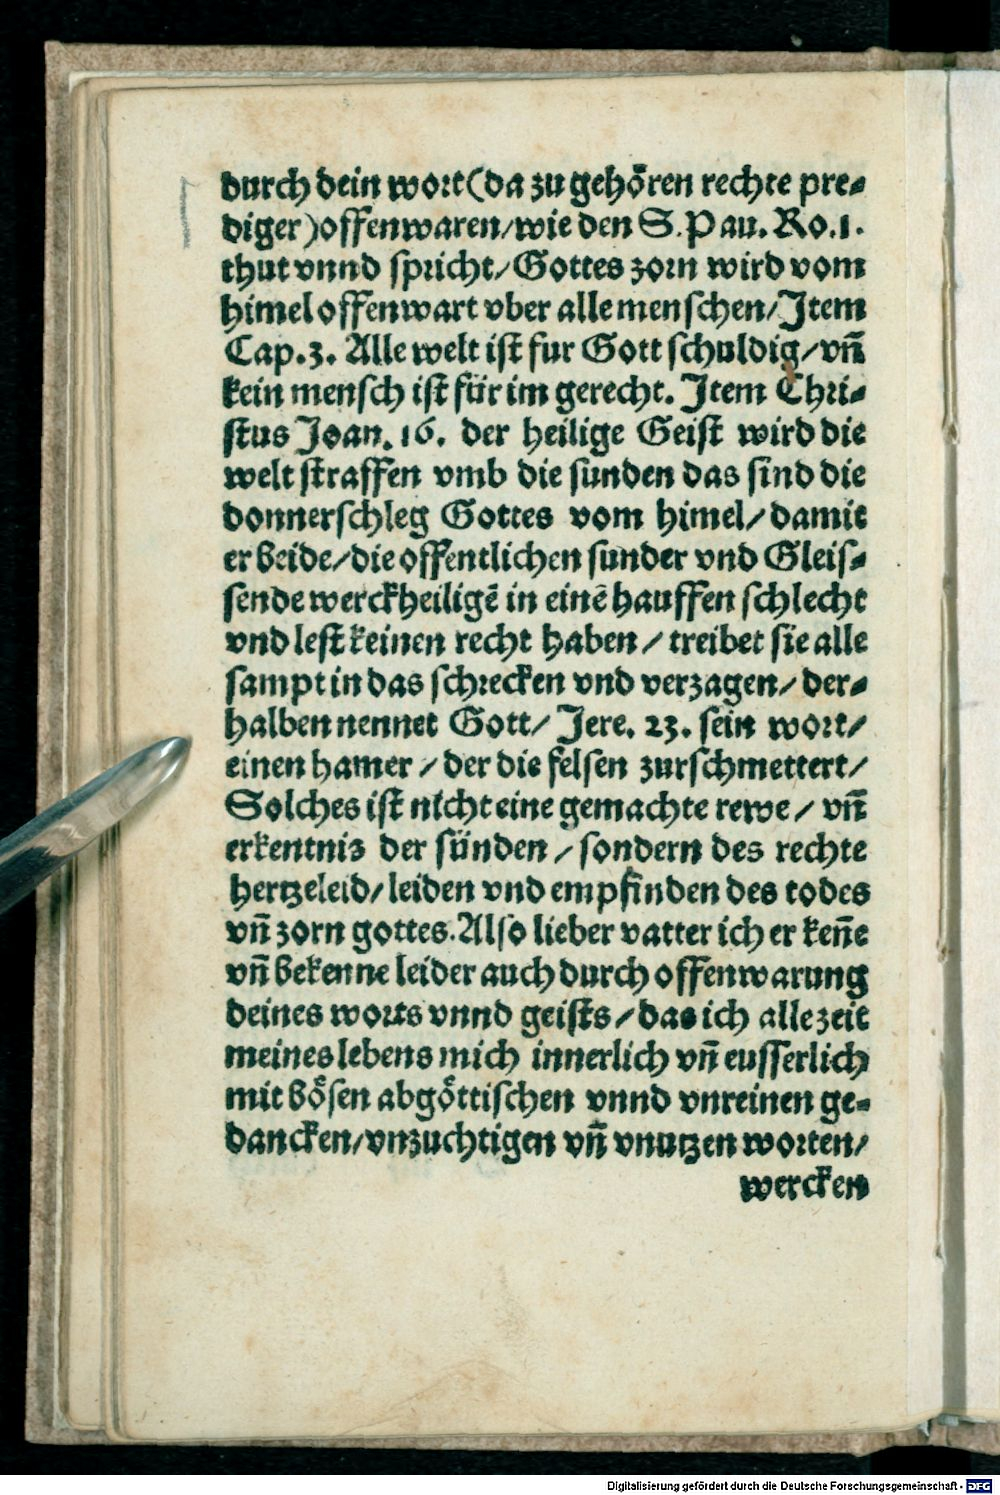 durch dein wort (da zu gehoͤren rechte pre-
diger) offenwaren / wie den S. Pau. Ro. 1.
thut vnnd spricht / Gottes zorn wird vom
himel offenwart vber alle menschen / Item
Cap. 3. Alle welt ist fur Gott schuldig / vn̄
kein mensch ist für im gerecht. Item Chri-
stus Joan. 16. der heilige Geist wird die
welt straffen vmb die sunden das sind die
donnerschleg Gottes vom himel / damit
er beide / die offentlichen sunder vnd Gleis-
sende werckheiligē in einē hauffen schlecht
vnd lest keinen recht haben / treibet sie alle
sampt in das schrecken vnd verzagen / der-
halben nennet Gott / Jere. 23. sein wort /
einen hamer / der die felsen zurschmettert /
Solches ist nicht eine gemachte rewe / vn̄
erkentnis der sünden / sondern des rechte
hertzeleid / leiden vnd empfinden des todes
vn̄ zorn gottes. Also lieber vatter ich er ken̄e
vn̄ bekenne leider auch durch offenwarung
deines worts vnnd geists / das ich alle zeit
meines lebens mich innerlich vn̄ eusserlich
mit boͤsen abgoͤttischen vnnd vnreinen ge-
dancken / vnzuchtigen vn̄ vnutzen worten /
wercken
Digitalisierung gefördert durch die Deutsche Forschungsgemeinschaft - DFG